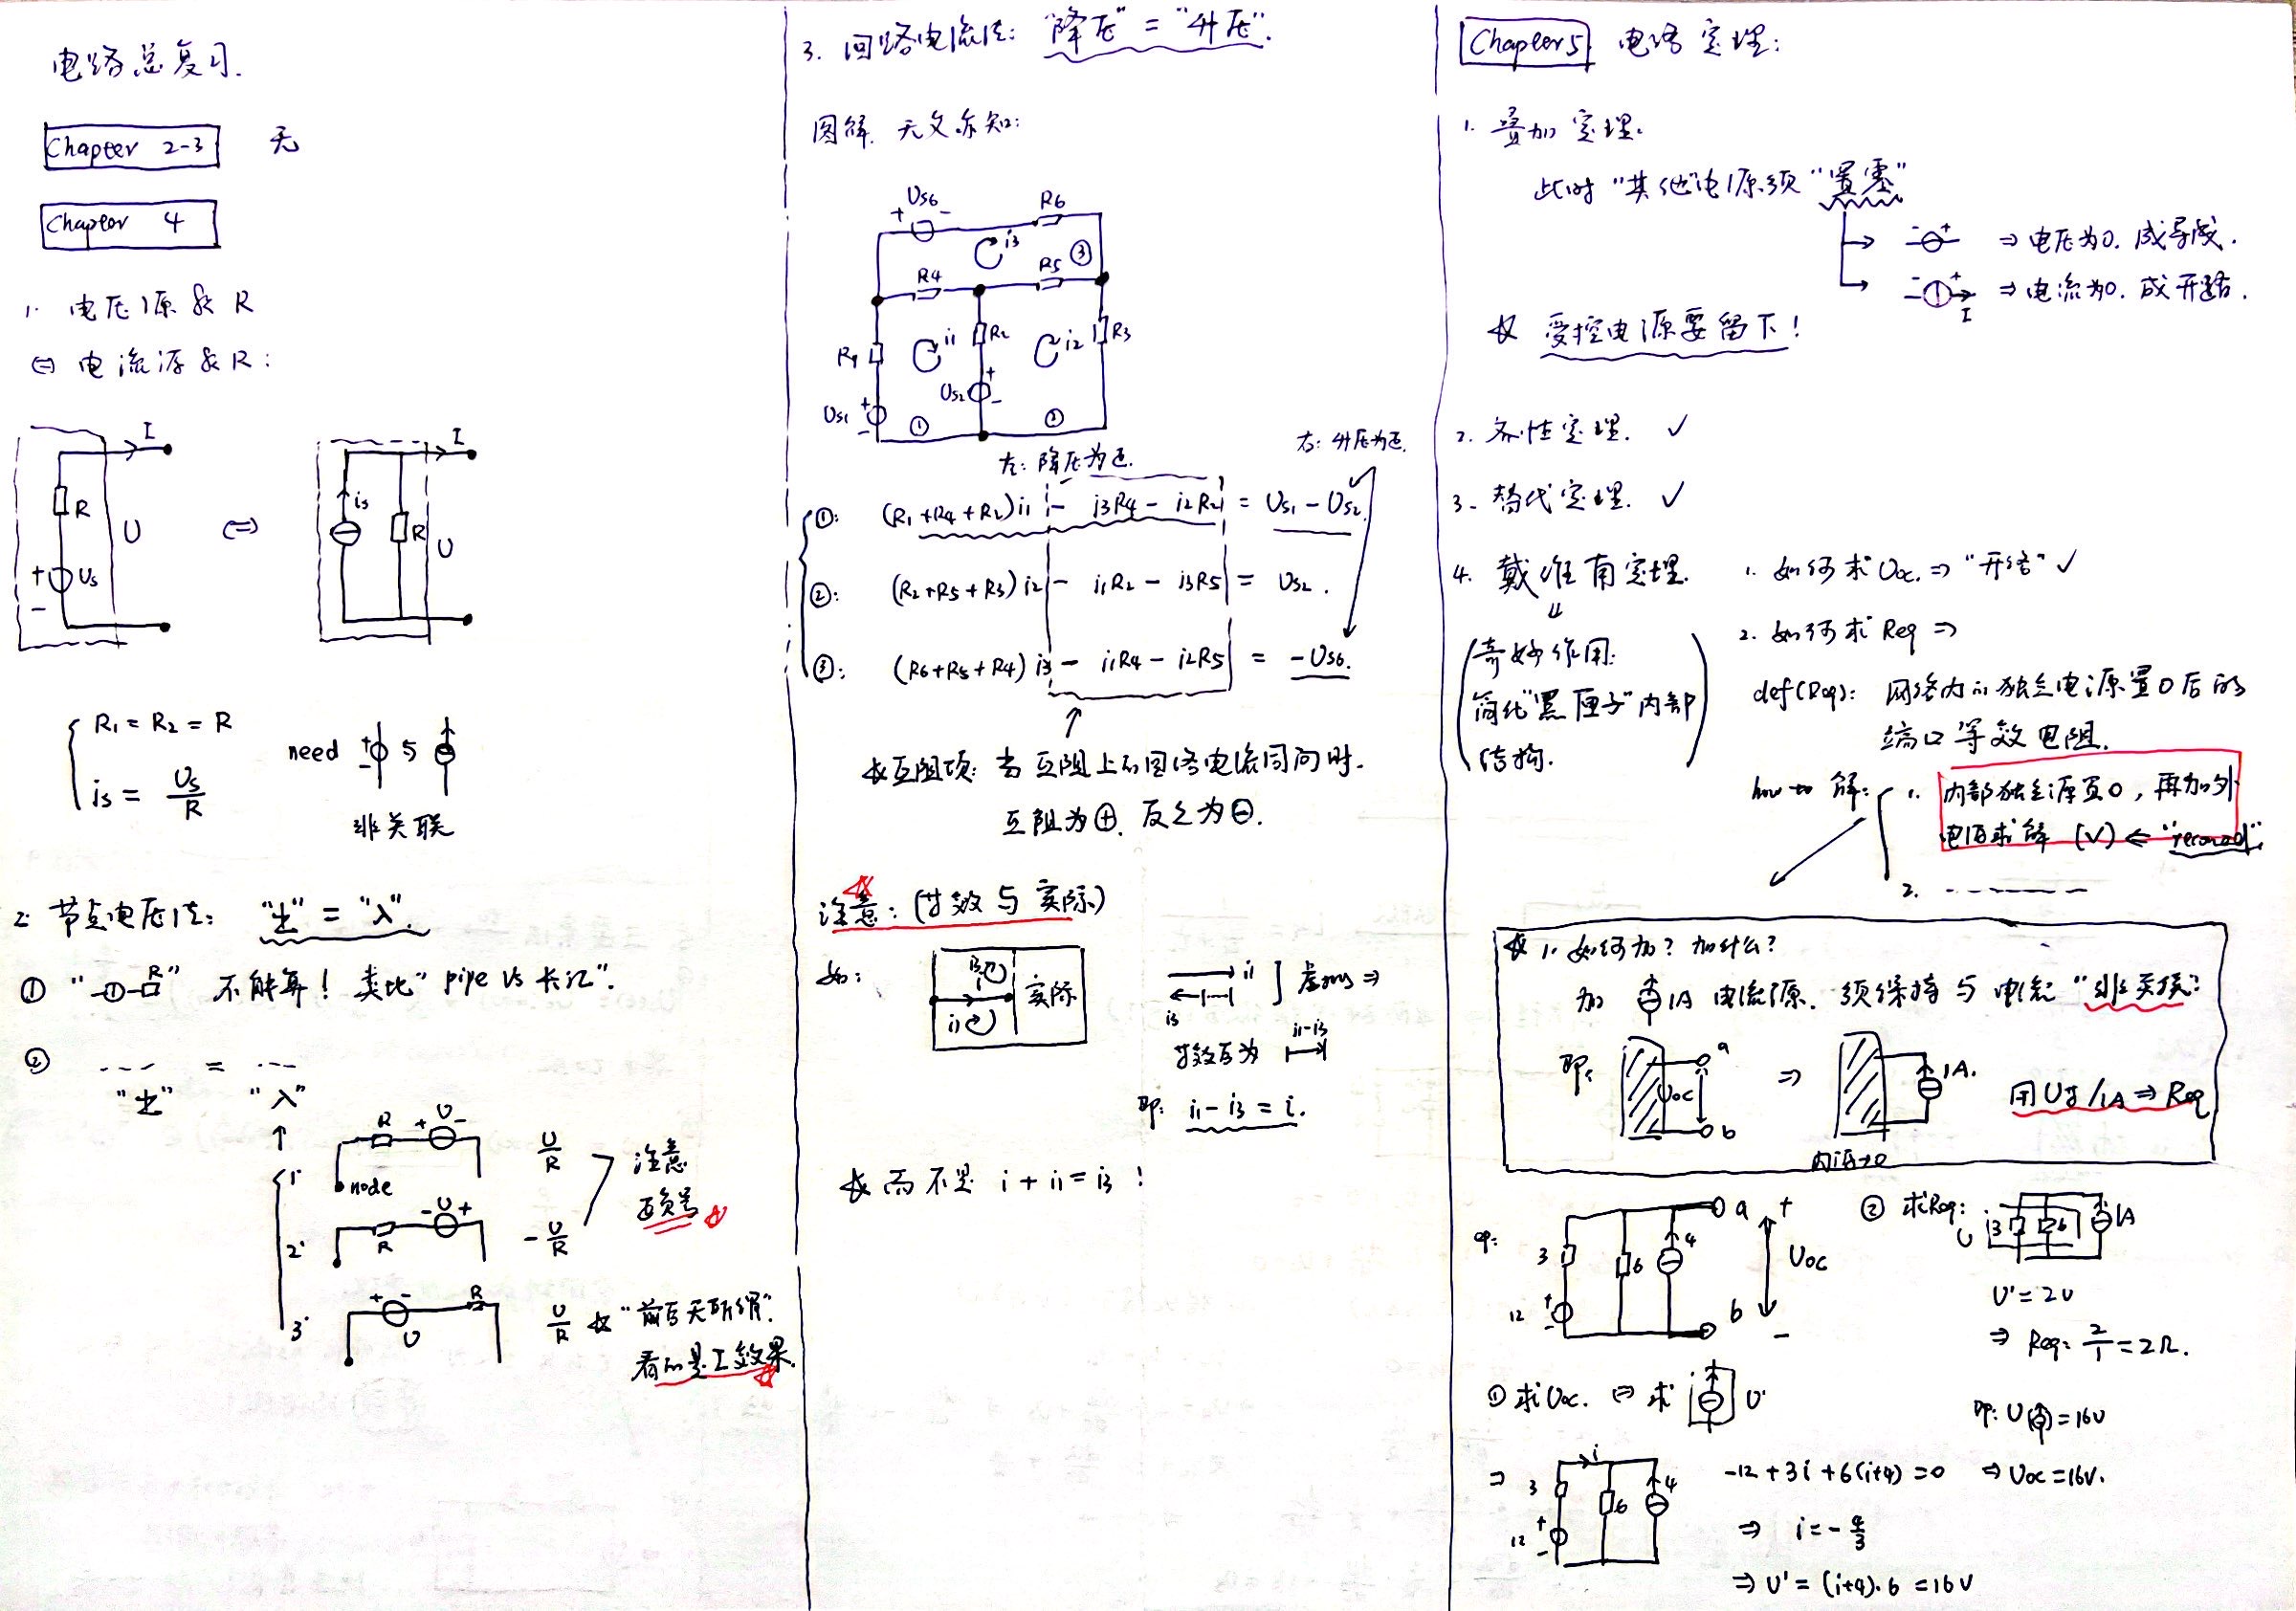 电路总复习.
Chapter 2-3 无
Chapter 4
1. 电压源&R
⇔ 电流源&R:
I
R
U
+ Us
-
⇔
I
is
R
U
R1 = R2 = R
is = Us/R
need + - 与
非关联
2. 节点电压法: "出" = "入".
① " R" 不能算! 类比" pipe vs 长江".
② --- = ---
"出" "入"
↑
1' R + U - U/R
node
2' R - U + -U/R
注意
正负号
3' + - U R U/R ☆ "前后无所谓".
看的是I效果.
3. 回路电流法: "降压" = "升压".
图解. 无文亦知:
Us6 + - R6
i3
R4 R5 ③
R1 i1 R2 i2 R3
Us1 + - Us2 + -
① ②
左: 降压为正.
右: 升压为正.
①: (R1+R4+R2)i1 - i3R4 - i2R2 = Us1 - Us2.
②: (R2+R5+R3)i2 - i1R2 - i3R5 = Us2.
③: (R6+R5+R4)i3 - i1R4 - i2R5 = -Us6.
☆互阻项: 当互阻上的回路电流同向时.
互阻为⊕. 反之为⊖.
注意: (等效与实际)
如: i3 i1 实际
i1
i3
⇒
等效后为 i1-i3
即: i1 - i3 = i.
☆ 而不是 i + i1 = i3 !
Chapter 5 电路定理:
1. 叠加定理.
此时"其他"电源须"置零"
→ - + ⇒ 电压为0. 成导线.
→ - + I ⇒ 电流为0. 成开路.
☆ 受控电源要留下!
2. 齐性定理. ✓
3. 替代定理. ✓
4. 戴维南定理.
1. 如何求Uoc. ⇒ "开路" ✓
2. 如何求Req ⇒
(奇妙作用:
简化"黑匣子"内部
结构.)
def(Req): 网络内的独立电源置0后的
端口等效电阻.
how to 解: 1. 内部独立源置0, 再加外
电源求解 (✓) ←
2. - - - - - -
☆ 1. 如何加? 加什么?
加 1A 电流源. 须保持与电流 "非关联"
即: Uoc a b ⇒ 1A. 用U等/1A ⇒ Req
内源→0
3 6 4 12 + - a + Uoc b -
② 求Req: 3 6 1A U
U' = 2V
⇒ Req: 2/1 = 2Ω.
① 求Uoc. ⇔ 求 U'
即: U = 16V
⇒ 3 i 6 4 12 + -
-12 + 3i + 6(i+4) = 0 ⇒ Uoc = 16V.
⇒ i = -4/3
⇒ U' = (i+4)·6 = 16V